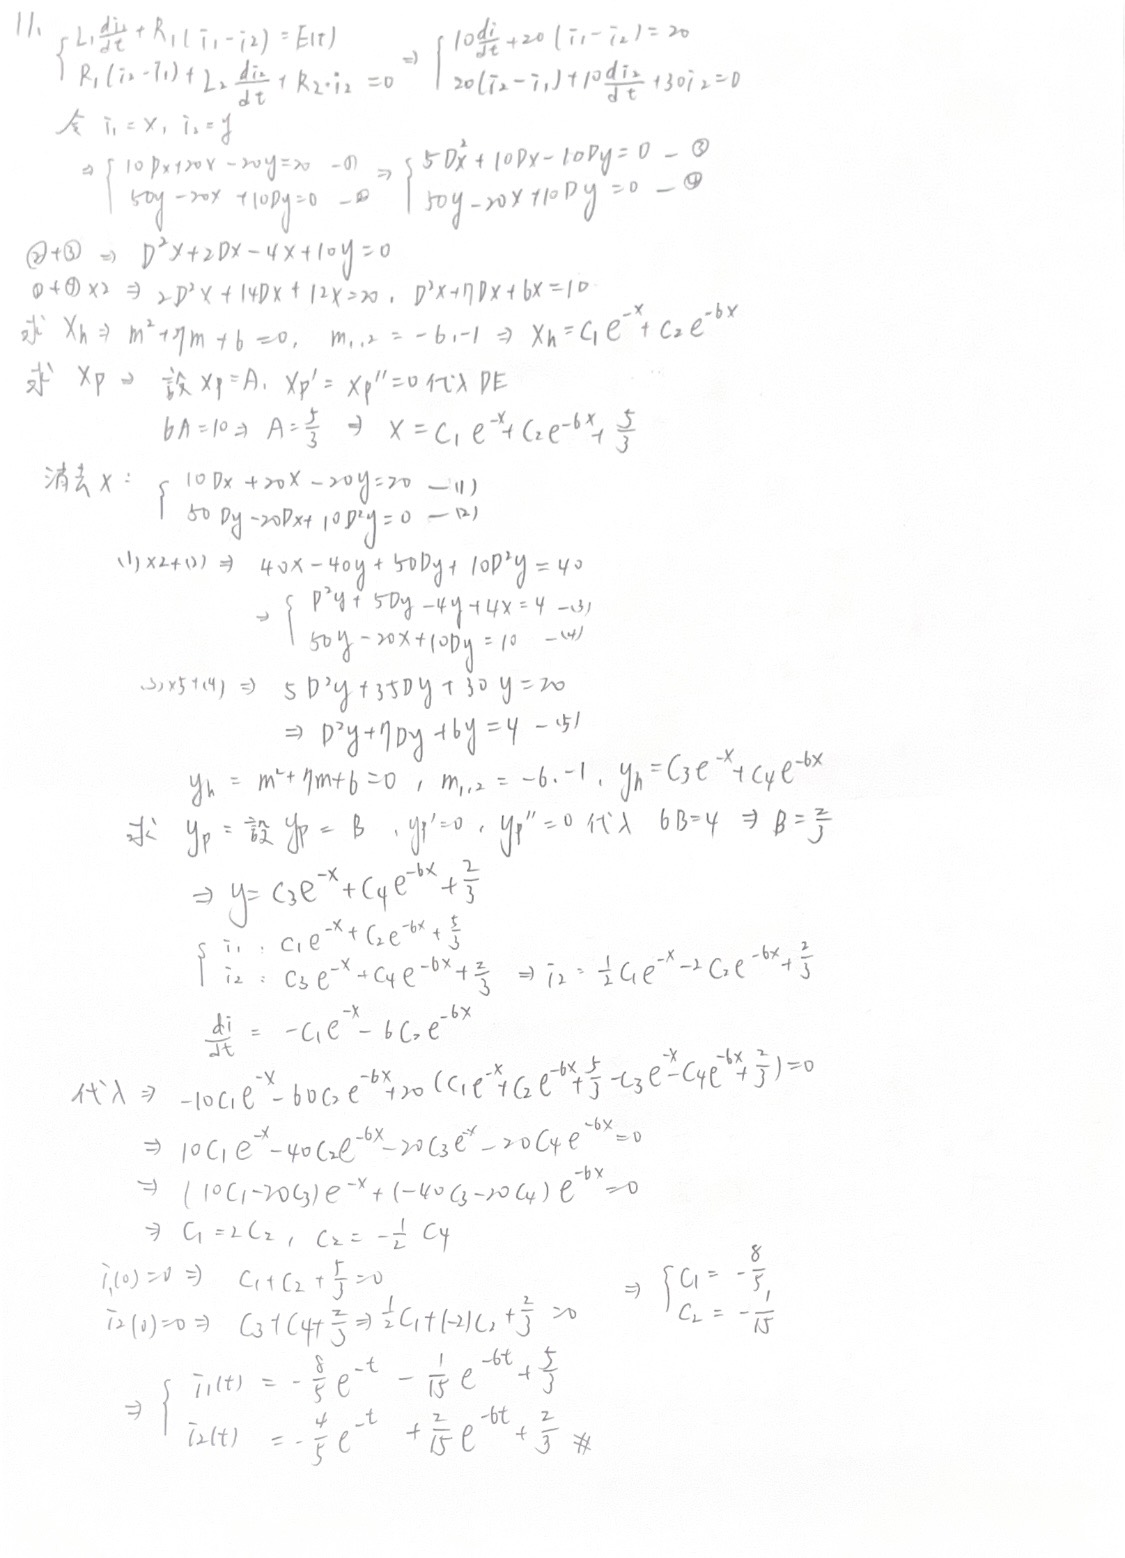 11. { L₁ di₁/dt + R₁(i₁-i₂) = E(t) ⇒ { 10 di/dt + 20(i₁-i₂) = 20
R₁(i₂-i₁) + L₂ di₂/dt + R₂·i₂ = 0 20(i₂-i₁) + 10 di₂/dt + 30i₂ = 0
令 i₁ = x, i₂ = y
⇒ { 10Dx+20x-20y=20 -① ⇒ { 5D²x+10Dx-10Dy=0 -③
50y-20x+10Dy=0 -② 50y-20x+10Dy=0 -④
②+③ ⇒ D²x+2Dx-4x+10y=0
①+④×2 ⇒ 2D²x+14Dx+12x=20, D²x+7Dx+6x=10
求 Xh ⇒ m²+7m+6=0, m₁,₂ = -6,-1 ⇒ Xh = C₁e^-x + C₂e^-6x
求 Xp ⇒ 設 Xp=A, Xp'=Xp''=0 代入 DE
6A=10 ⇒ A=5/3 ⇒ X = C₁e^-x + C₂e^-6x + 5/3
消去 x: { 10Dx+20x-20y=20 -(1)
50Dy-20Dx+10D²y=0 -(2)
(1)×2+(2) ⇒ 40x-40y+50Dy+10D²y=40
⇒ { D²y+5Dy-4y+4x=4 -(3)
50y-20x+10Dy=10 -(4)
(3)×5+(4) ⇒ 5D²y+35Dy+30y=20
⇒ D²y+7Dy+6y=4 -(5)
yh = m²+7m+6=0, m₁,₂ = -6.-1, yh = C₃e^-x + C₄e^-6x
求 yp = 設 yp = B, yp'=0, yp''=0 代入 6B=4 ⇒ B=2/3
⇒ y = C₃e^-x + C₄e^-6x + 2/3
{ i₁ : C₁e^-x + C₂e^-6x + 5/3
i₂ : C₃e^-x + C₄e^-6x + 2/3 ⇒ i₂ = 1/2 C₁e^-x - 2C₂e^-6x + 2/3
di/dt = -C₁e^-x - 6C₂e^-6x
代入 ⇒ -10C₁e^-x - 60C₂e^-6x + 20(C₁e^-x + C₂e^-6x + 5/3 - C₃e^-x - C₄e^-6x + 2/3) = 0
⇒ 10C₁e^-x - 40C₂e^-6x - 20C₃e^-x - 20C₄e^-6x = 0
⇒ (10C₁-20C₃)e^-x + (-40C₃-20C₄)e^-6x = 0
⇒ C₁ = 2C₂, C₂ = -1/2 C₄
i₁(0)=0 ⇒ C₁+C₂+5/3=0 ⇒ { C₁ = -8/5
i₂(0)=0 ⇒ C₃+C₄+2/3 ⇒ 1/2 C₁+(-2)C₂+2/3=0 C₂ = -1/15
⇒ { i₁(t) = -8/5 e^-t - 1/15 e^-6t + 5/3
i₂(t) = -4/5 e^-t + 2/15 e^-6t + 2/3 #